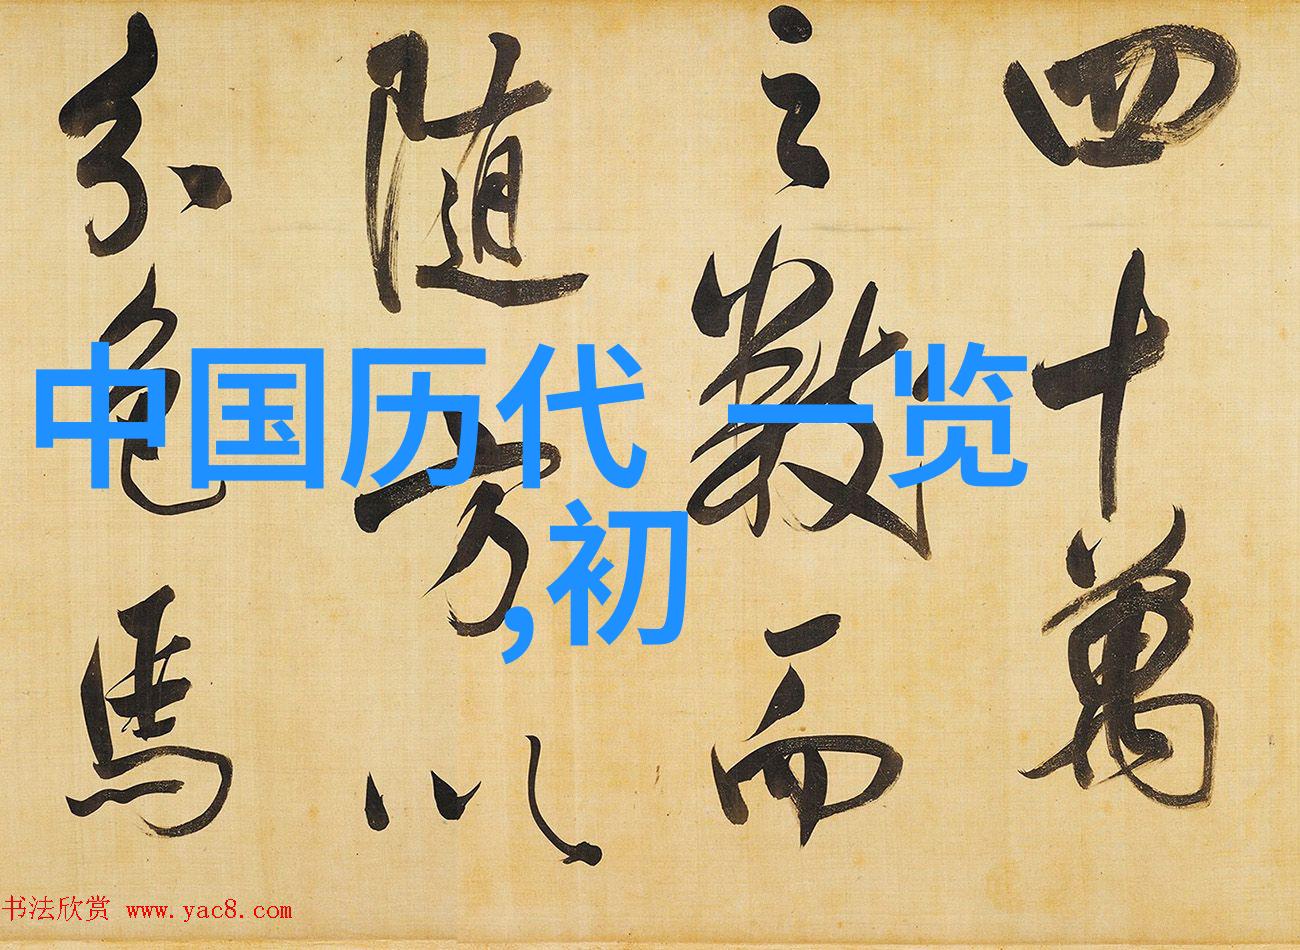 四十萬
之數而
随方以
分色馬
中国历代 一览
,初
书法欣赏 www.yac8.com